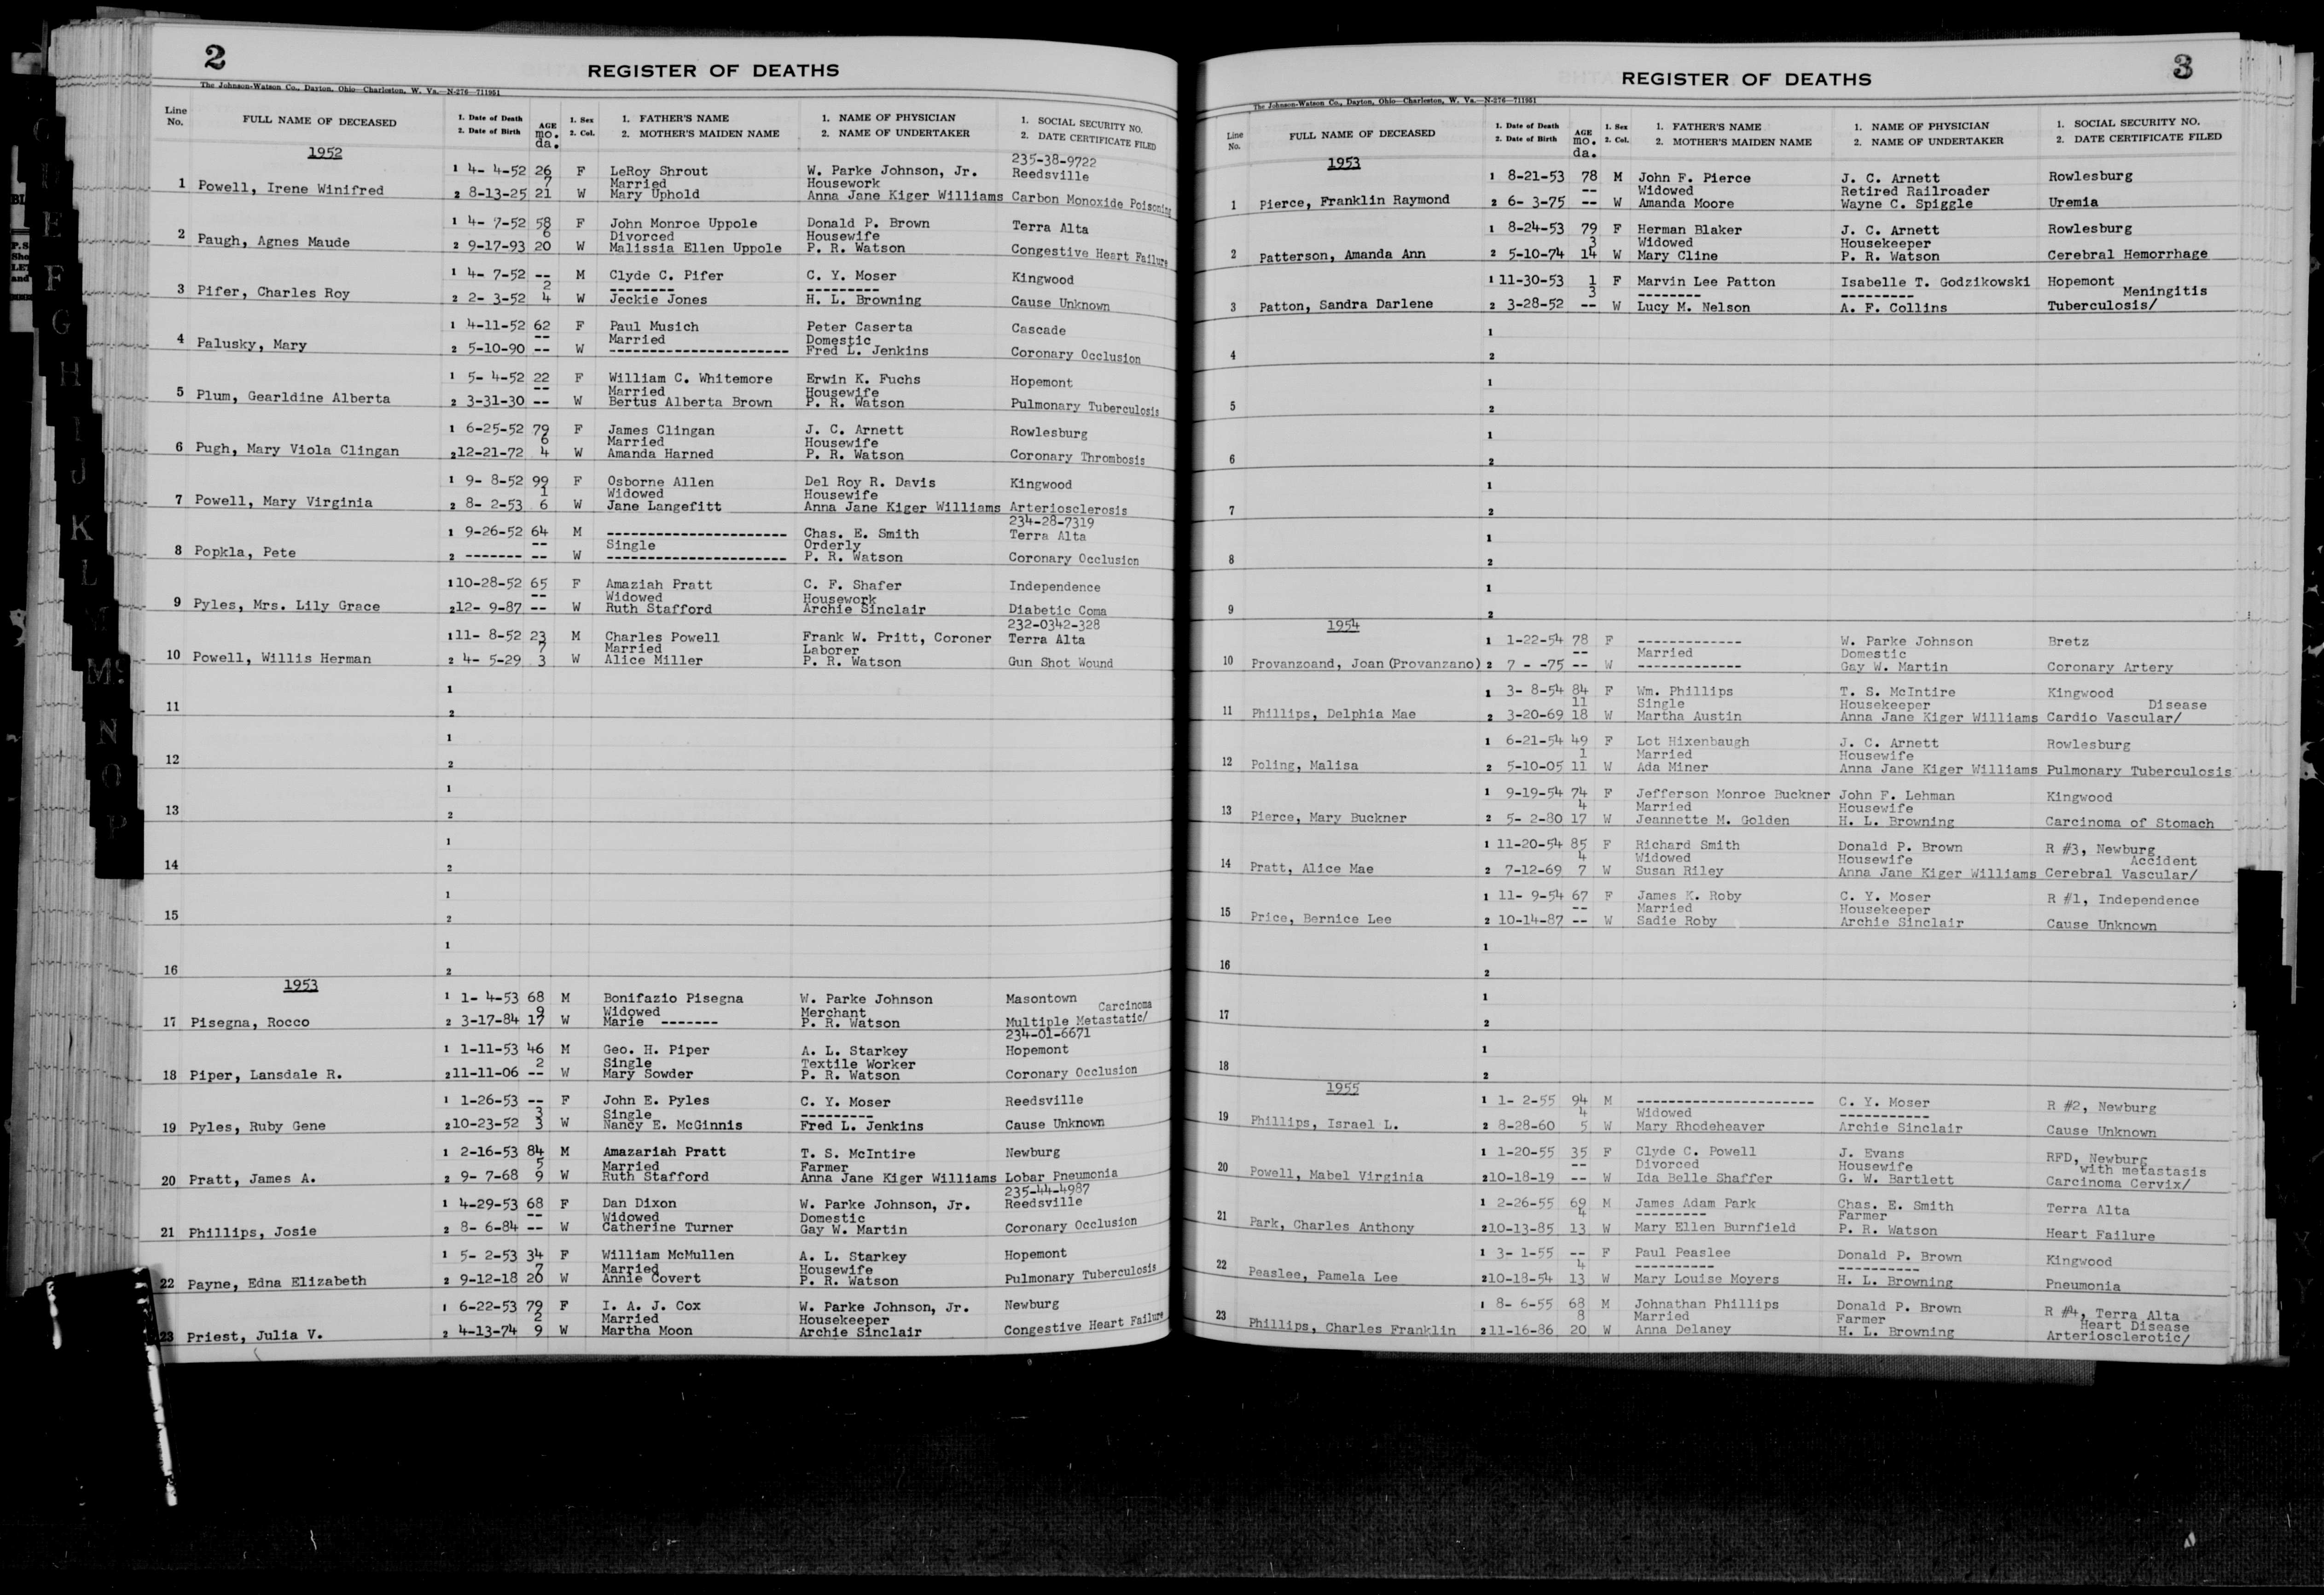 2
REGISTER OF DEATHS
The Johnson-Watson Co., Dayton, Ohio—Charleston, W. Va.—N-276—711951
Line No. FULL NAME OF DECEASED 1. Date of Death 2. Date of Birth AGE mo. da. 1. Sex 2. Col. 1. FATHER'S NAME 2. MOTHER'S MAIDEN NAME 1. NAME OF PHYSICIAN 2. NAME OF UNDERTAKER 1. SOCIAL SECURITY NO. 2. DATE CERTIFICATE FILED
1952
235-38-9722
1 4- 4-52 26 F LeRoy Shrout W. Parke Johnson, Jr. Reedsville
7 Married Housework
1 Powell, Irene Winifred 2 8-13-25 21 W Mary Uphold Anna Jane Kiger Williams Carbon Monoxide Poisoning
1 4- 7-52 58 F John Monroe Uppole Donald P. Brown Terra Alta
6 Divorced Housewife
2 Paugh, Agnes Maude 2 9-17-93 20 W Malissia Ellen Uppole P. R. Watson Congestive Heart Failure
1 4- 7-52 -- M Clyde C. Pifer C. Y. Moser Kingwood
2 -------- ---------
3 Pifer, Charles Roy 2 2- 3-52 4 W Jeckie Jones H. L. Browning Cause Unknown
1 4-11-52 62 F Paul Musich Peter Caserta Cascade
-- Married Domestic
4 Palusky, Mary 2 5-10-90 -- W ---------------------- Fred L. Jenkins Coronary Occlusion
1 5- 4-52 22 F William C. Whitemore Erwin K. Fuchs Hopemont
-- Married Housewife
5 Plum, Gearldine Alberta 2 3-31-30 -- W Bertus Alberta Brown P. R. Watson Pulmonary Tuberculosis
1 6-25-52 79 F James Clingan J. C. Arnett Rowlesburg
6 Married Housewife
6 Pugh, Mary Viola Clingan 2 12-21-72 4 W Amanda Harned P. R. Watson Coronary Thrombosis
1 9- 8-52 99 F Osborne Allen Del Roy R. Davis Kingwood
1 Widowed Housewife
7 Powell, Mary Virginia 2 8- 2-53 6 W Jane Langefitt Anna Jane Kiger Williams Arteriosclerosis
234-28-7319
1 9-26-52 64 M ---------------------- Chas. E. Smith Terra Alta
-- Single Orderly
8 Popkla, Pete 2 ------- -- W ---------------------- P. R. Watson Coronary Occlusion
1 10-28-52 65 F Amaziah Pratt C. F. Shafer Independence
-- Widowed Housework
9 Pyles, Mrs. Lily Grace 2 12- 9-87 -- W Ruth Stafford Archie Sinclair Diabetic Coma
232-0342-328
1 11- 8-52 23 M Charles Powell Frank W. Pritt, Coroner Terra Alta
7 Married Laborer
10 Powell, Willis Herman 2 4- 5-29 3 W Alice Miller P. R. Watson Gun Shot Wound
1
11 2
1
12 2
1
13 2
1
14 2
1
15 2
1
16 2
1953
1 1- 4-53 68 M Bonifazio Pisegna W. Parke Johnson Masontown
9 Widowed Merchant Carcinoma
17 Pisegna, Rocco 2 3-17-84 17 W Marie ------- P. R. Watson Multiple Metastatic/
234-01-6671
1 1-11-53 46 M Geo. H. Piper A. L. Starkey Hopemont
2 Single Textile Worker
18 Piper, Lansdale R. 2 11-11-06 -- W Mary Sowder P. R. Watson Coronary Occlusion
1 1-26-53 -- F John E. Pyles C. Y. Moser Reedsville
3 Single ---------
19 Pyles, Ruby Gene 2 10-23-52 3 W Nancy E. McGinnis Fred L. Jenkins Cause Unknown
1 2-16-53 84 M Amazariah Pratt T. S. McIntire Newburg
5 Married Farmer
20 Pratt, James A. 2 9- 7-68 9 W Ruth Stafford Anna Jane Kiger Williams Lobar Pneumonia
235-44-4987
1 4-29-53 68 F Dan Dixon W. Parke Johnson, Jr. Reedsville
-- Widowed Domestic
21 Phillips, Josie 2 8- 6-84 -- W Catherine Turner Gay W. Martin Coronary Occlusion
1 5- 2-53 34 F William McMullen A. L. Starkey Hopemont
7 Married Housewife
22 Payne, Edna Elizabeth 2 9-12-18 20 W Annie Covert P. R. Watson Pulmonary Tuberculosis
1 6-22-53 79 F I. A. J. Cox W. Parke Johnson, Jr. Newburg
2 Married Housekeeper
23 Priest, Julia V. 2 4-13-74 9 W Martha Moon Archie Sinclair Congestive Heart Failure
E
F
G
H
I
J
K
L
M
Mc
N
O
P
3
REGISTER OF DEATHS
The Johnson-Watson Co., Dayton, Ohio—Charleston, W. Va.—N-276—711951
Line No. FULL NAME OF DECEASED 1. Date of Death 2. Date of Birth AGE mo. da. 1. Sex 2. Col. 1. FATHER'S NAME 2. MOTHER'S MAIDEN NAME 1. NAME OF PHYSICIAN 2. NAME OF UNDERTAKER 1. SOCIAL SECURITY NO. 2. DATE CERTIFICATE FILED
1953
1 8-21-53 78 M John F. Pierce J. C. Arnett Rowlesburg
-- Widowed Retired Railroader
1 Pierce, Franklin Raymond 2 6- 3-75 -- W Amanda Moore Wayne C. Spiggle Uremia
1 8-24-53 79 F Herman Blaker J. C. Arnett Rowlesburg
3 Widowed Housekeeper
2 Patterson, Amanda Ann 2 5-10-74 14 W Mary Cline P. R. Watson Cerebral Hemorrhage
1 11-30-53 1 F Marvin Lee Patton Isabelle T. Godzikowski Hopemont
3 -------- --------- Meningitis
3 Patton, Sandra Darlene 2 3-28-52 -- W Lucy M. Nelson A. F. Collins Tuberculosis/
1
4 2
1
5 2
1
6 2
1
7 2
1
8 2
1
9 2
1954
1 1-22-54 78 F ------------- W. Parke Johnson Bretz
-- Married Domestic
10 Provanzoand, Joan (Provanzano) 2 7 - -75 -- W ------------- Gay W. Martin Coronary Artery
1 3- 8-54 84 F Wm. Phillips T. S. McIntire Kingwood
11 Single Housekeeper Disease
11 Phillips, Delphia Mae 2 3-20-69 18 W Martha Austin Anna Jane Kiger Williams Cardio Vascular/
1 6-21-54 49 F Lot Hixenbaugh J. C. Arnett Rowlesburg
1 Married Housewife
12 Poling, Malisa 2 5-10-05 11 W Ada Miner Anna Jane Kiger Williams Pulmonary Tuberculosis
1 9-19-54 74 F Jefferson Monroe Buckner John F. Lehman Kingwood
4 Married Housewife
13 Pierce, Mary Buckner 2 5- 2-80 17 W Jeannette M. Golden H. L. Browning Carcinoma of Stomach
1 11-20-54 85 F Richard Smith Donald P. Brown R #3, Newburg
4 Widowed Housewife Accident
14 Pratt, Alice Mae 2 7-12-69 7 W Susan Riley Anna Jane Kiger Williams Cerebral Vascular/
1 11- 9-54 67 F James K. Roby C. Y. Moser R #1, Independence
-- Married Housekeeper
15 Price, Bernice Lee 2 10-14-87 -- W Sadie Roby Archie Sinclair Cause Unknown
1
16 2
1
17 2
1
18 2
1955
1 1- 2-55 94 M ---------------------- C. Y. Moser R #2, Newburg
4 Widowed -----------
19 Phillips, Israel L. 2 8-28-60 5 W Mary Rhodeheaver Archie Sinclair Cause Unknown
1 1-20-55 35 F Clyde C. Powell J. Evans RFD, Newburg
-- Divorced Housewife with metastasis
20 Powell, Mabel Virginia 2 10-18-19 -- W Ida Belle Shaffer G. W. Bartlett Carcinoma Cervix/
1 2-26-55 69 M James Adam Park Chas. E. Smith Terra Alta
4 --------- Farmer
21 Park, Charles Anthony 2 10-13-85 13 W Mary Ellen Burnfield P. R. Watson Heart Failure
1 3- 1-55 -- F Paul Peaslee Donald P. Brown Kingwood
4 ---------- ----------
22 Peaslee, Pamela Lee 2 10-18-54 13 W Mary Louise Moyers H. L. Browning Pneumonia
1 8- 6-55 68 M Johnathan Phillips Donald P. Brown R #4, Terra Alta
8 Married Farmer Heart Disease
23 Phillips, Charles Franklin 2 11-16-86 20 W Anna Delaney H. L. Browning Arteriosclerotic/